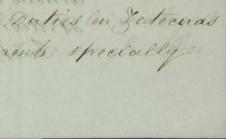 Duties in Zatecuas
ents specially